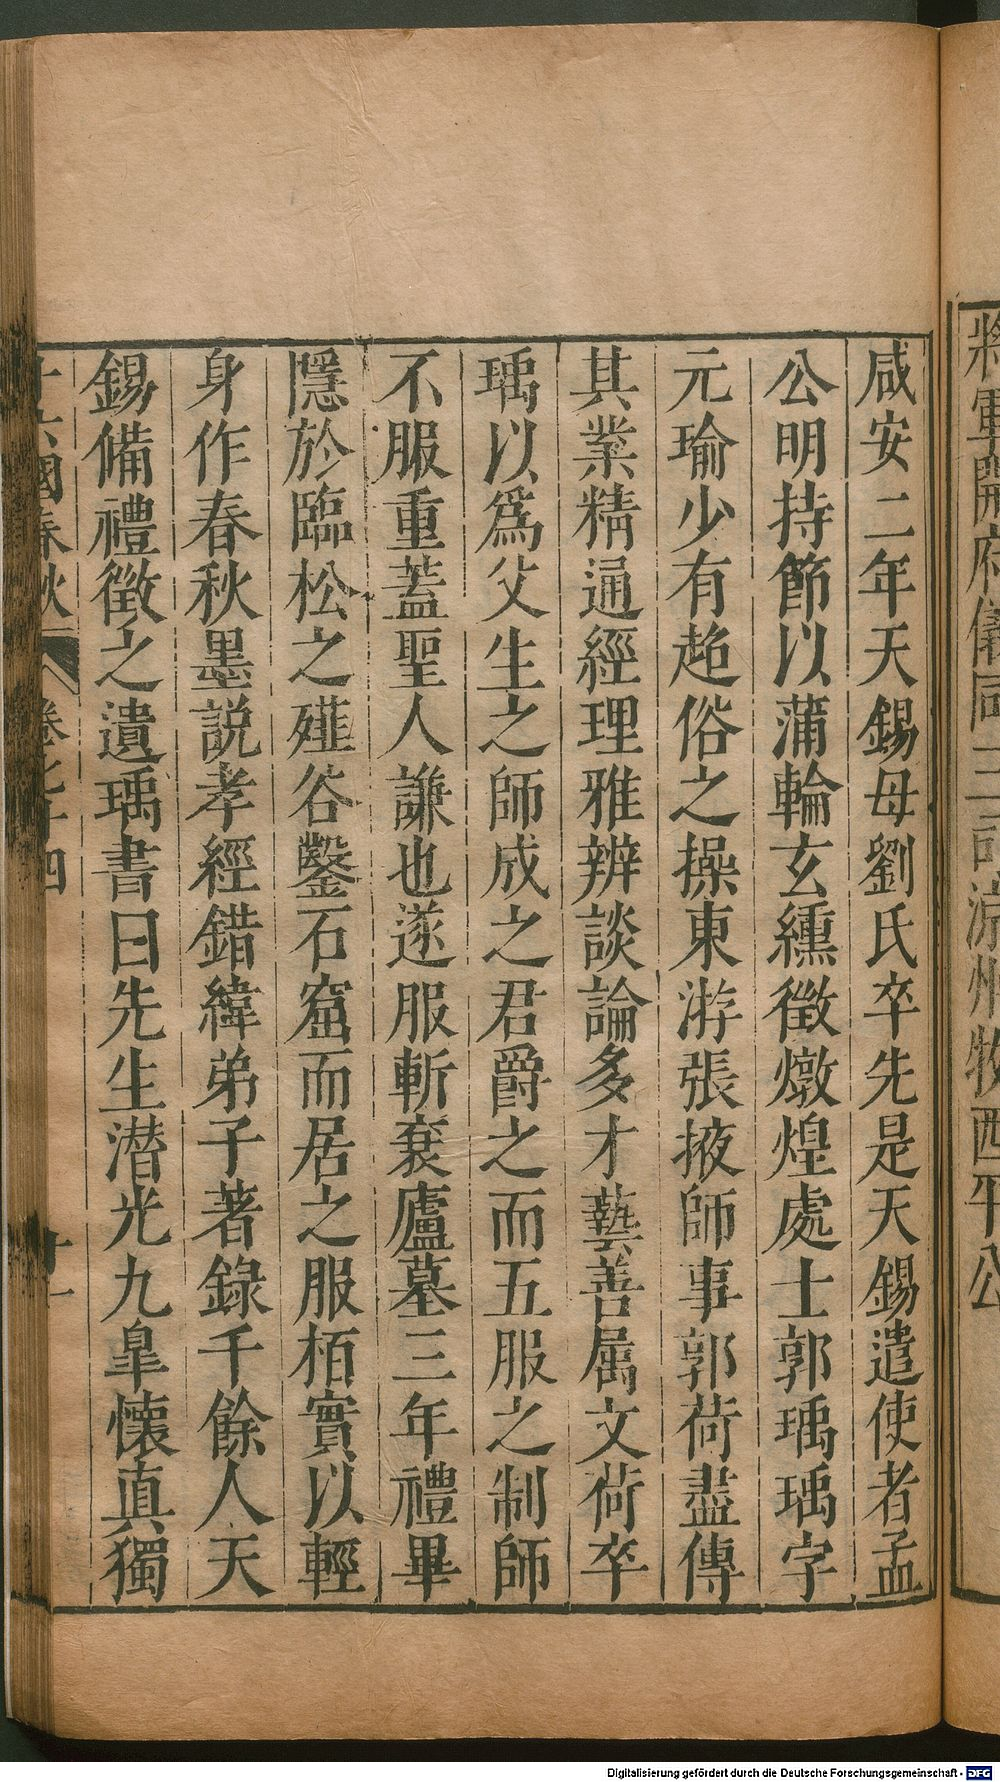 將軍開府儀同三司涼州牧西平公
咸安二年天錫母劉氏卒先是天錫遣使者孟
公明持節以蒲輪玄纁徵燉煌處士郭瑀瑀字
元瑜少有超俗之操東游張掖師事郭荷盡傳
其業精通經理雅辨談論多才藝善属文荷卒
瑀以爲父生之師成之君爵之而五服之制師
不服重蓋聖人謙也遂服斬衰廬墓三年禮畢
隱於臨松之薤谷鑿石窟而居之服栢實以輕
身作春秋墨説孝經錯緯弟子著錄千餘人天
錫備禮徵之遺瑀書曰先生潜光九皐懷真獨
十六國春秋 卷七十四 十一
Digitalisierung gefördert durch die Deutsche Forschungsgemeinschaft - DFG